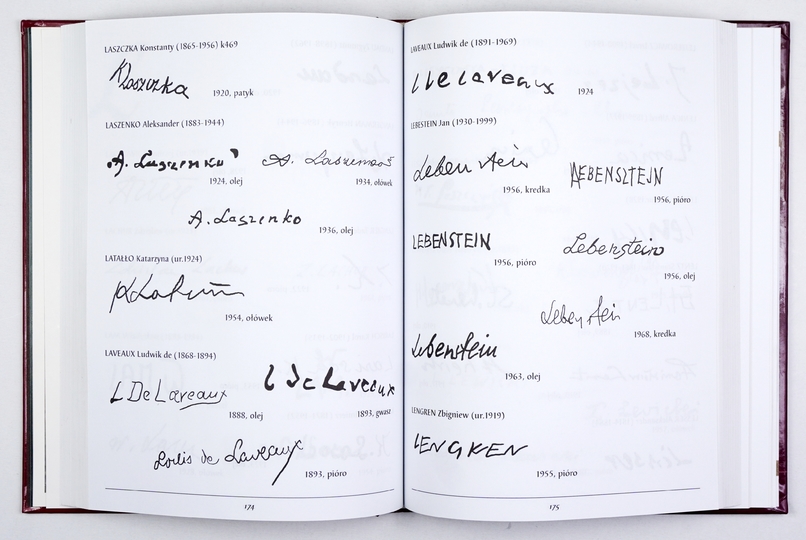 LASZCZKA Konstanty (1865-1956) k469
Klaszczka
1920, patyk
LASZENKO Aleksander (1883-1944)
A. Laszenko
1924, olej
A. Laszenko
1934, ołówek
A. Laszenko
1936, olej
LATAŁŁO Katarzyna (ur.1924)
1954, ołówek
LAVEAUX Ludwik de (1868-1894)
L De Laveaux
1888, olej
L de Laveaux
1893, gwasz
Louis de Laveaux
1893, pióro
174
LAVEAUX Ludwik de (1891-1969)
L de Laveaux
1924
LEBESTEIN Jan (1930-1999)
Lebenstein
1956, kredka
LEBENSZTEJN
1956, pióro
LEBENSTEIN
1956, pióro
Lebenstein
1956, olej
Lebenstein
1968, kredka
Lebenstein
1963, olej
LENGREN Zbigniew (ur.1919)
LENGREN
1955, pióro
175